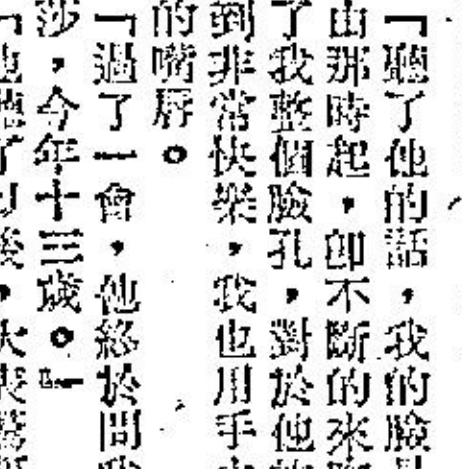 「聽了他的話，我的臉
由那時起，卽不斷的來
了我整個臉孔，對於他
到非常快樂，我也用手
的嘴唇。
「過了一會，他終於問
莎，今年十三歲。」
他聽了以後，大